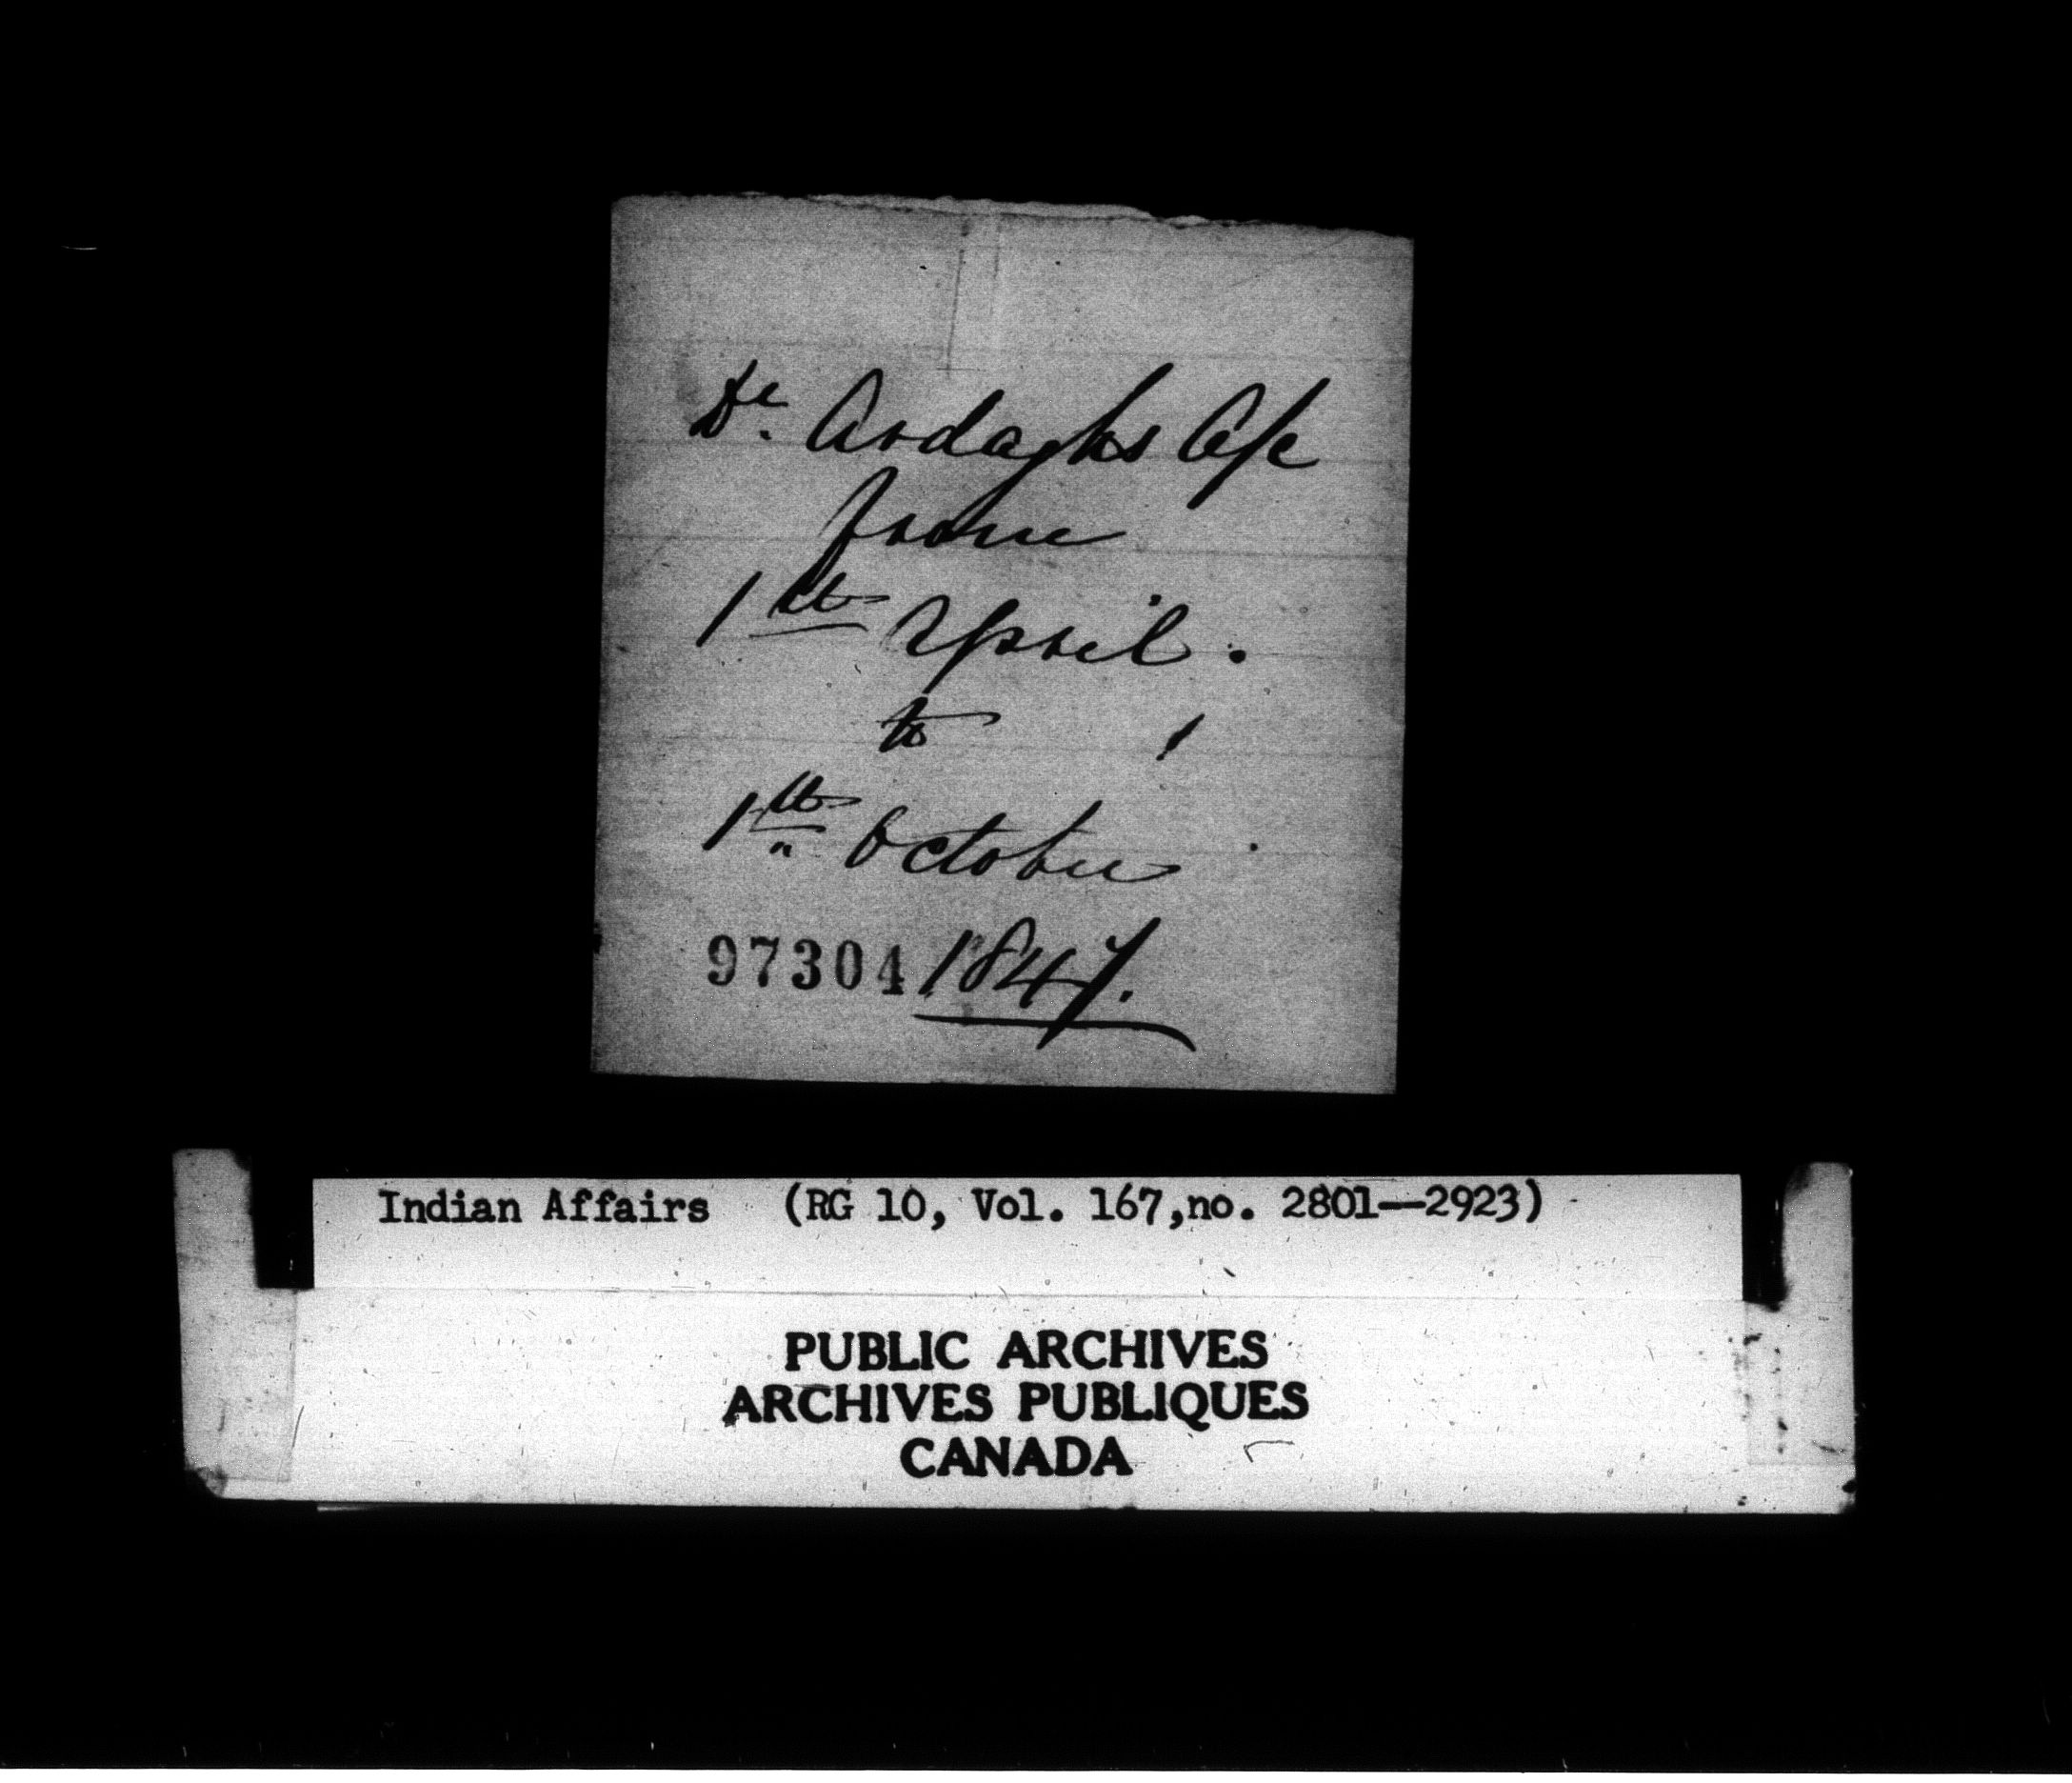 Dr. Ardaghs A/c
from
1st April.
to
1st October
97304 1847.
Indian Affairs (RG 10, Vol. 167,no. 2801—2923)
PUBLIC ARCHIVES
ARCHIVES PUBLIQUES
CANADA